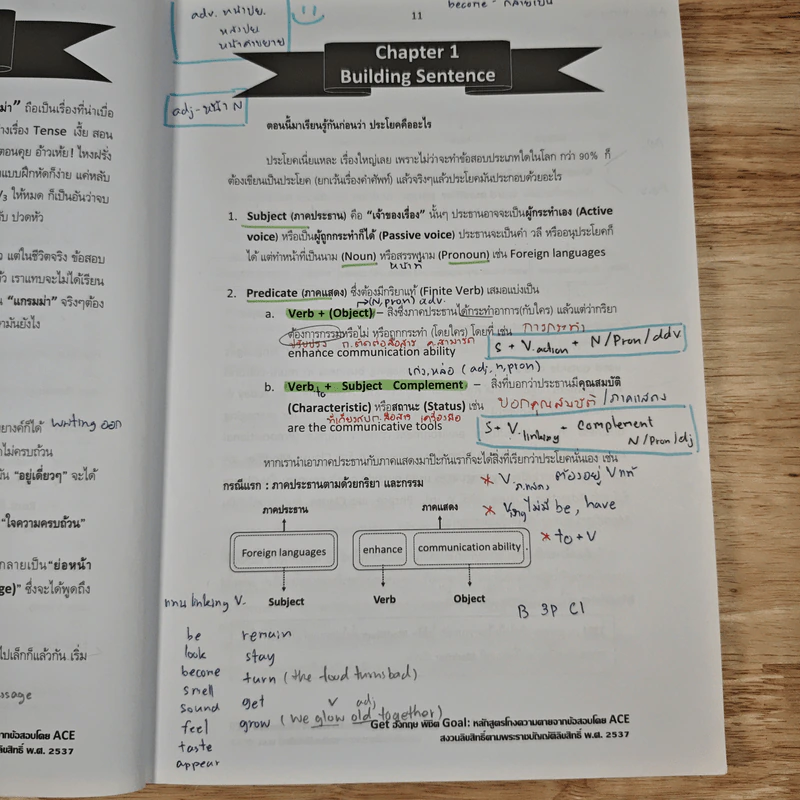 11
become - กลายเป็น
adv. หน้าปย.
หลังปย
หน้าคำขยาย
adj - หน้า N
Chapter 1
Building Sentence
ตอนนี้มาเรียนรู้กันก่อนว่า ประโยคคืออะไร
ประโยคเนี่ยแหละ เรื่องใหญ่เลย เพราะไม่ว่าจะทำข้อสอบประเภทใดในโลก กว่า 90% ก็
ต้องเขียนเป็นประโยค (ยกเว้นเรื่องคำศัพท์) แล้วจริงๆแล้วประโยคมันประกอบด้วยอะไร
1. Subject (ภาคประธาน) คือ “เจ้าของเรื่อง” นั้นๆ ประธานอาจจะเป็นผู้กระทำเอง (Active
voice) หรือเป็นผู้ถูกกระทำก็ได้ (Passive voice) ประธานจะเป็นคำ วลี หรืออนุประโยคก็
ได้ แต่ทำหน้าที่เป็นนาม (Noun) หรือสรรพนาม (Pronoun) เช่น Foreign languages
หน้าที่
2. Predicate (ภาคแสดง) ซึ่งต้องมีกริยาแท้ (Finite Verb) เสมอแบ่งเป็น
(N, pron) adv.
a. Verb + (Object) – สิ่งซึ่งภาคประธานได้กระทำอาการ(กับใคร) แล้วแต่ว่ากริยา
ต้องการกรรมหรือไม่ หรือถูกกระทำ (โดยใคร) โดยที่ เช่น การกระทำ
ปรับปรุง ก.ติดต่อสื่อสาร ค.สามารถ
enhance communication ability
S + V.action + N/Pron/adv
เก่ง, หล่อ (adj, n, pron)
b. Verb to + Subject Complement – สิ่งที่บอกว่าประธานมีคุณสมบัติ
(Characteristic) หรือสถานะ (Status) เช่น บอกคุณสมบัติ / ภาคแสดง
ที่เกี่ยวกับก.สื่อสาร เครื่องมือ
are the communicative tools
S + V.linking + complement
N/Pron/dj
หากเรานำเอาภาคประธานกับภาคแสดงมาปะกันเราก็จะได้สิ่งที่เรียกว่าประโยคนั่นเอง เช่น
กรณีแรก : ภาคประธานตามด้วยกริยา และกรรม
* V ต้องอยู่ V แท้
* ไม่มี be, have
* to + V
ภาคประธาน ภาคแสดง
Foreign languages enhance communication ability
Subject Verb Object
B 3P C1
linking V.
be remain
look stay
become turn (the food turns bad)
smell
sound get v adj
feel grow (we glow old together)
taste
appear
Get อังกฤษ พิชิต Goal: หลักสูตรโกงความตายจากข้อสอบโดย ACE
สงวนลิขสิทธิ์ตามพระราชบัญญัติลิขสิทธิ์ พ.ศ. 2537
ม่า” ถือเป็นเรื่องที่น่าเบื่อ
างเรื่อง Tense เงี้ย สอน
ตอนคุย อ้าวเห้ย! ไหงฝรั่ง
แบบฝึกหัดก็ง่าย แค่หลับ
V3 ให้หมด ก็เป็นอันว่าจบ
ับ ปวดหัว
แต่ในชีวิตจริง ข้อสอบ
ว เราแทบจะไม่ได้เรียน
น “แกรมม่า” จริงๆต้อง
ามันยังไง
ยางค์ก็ได้ writing ออก
ไม่ครบถ้วน
น “อยู่เดี่ยวๆ” จะได้
“ใจความครบถ้วน”
กลายเป็น “ย่อหน้า
ge)” ซึ่งจะได้พูดถึง
ไปเล็กก็แล้วกัน เริ่ม
ssage
ากข้อสอบโดย ACE
ลิขสิทธิ์ พ.ศ. 2537